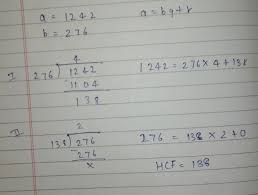 a = 1242 a = bq+r
b = 276
I
4
276 ) 1242 1242 = 276×4+138
1104
138
II
2
138 ) 276 276 = 138×2+0
276
x HCF = 138